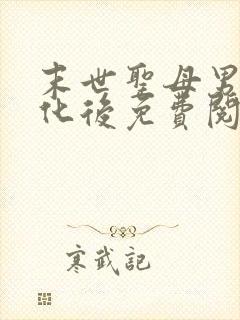 末世聖母男
化後免費閱
寒武記